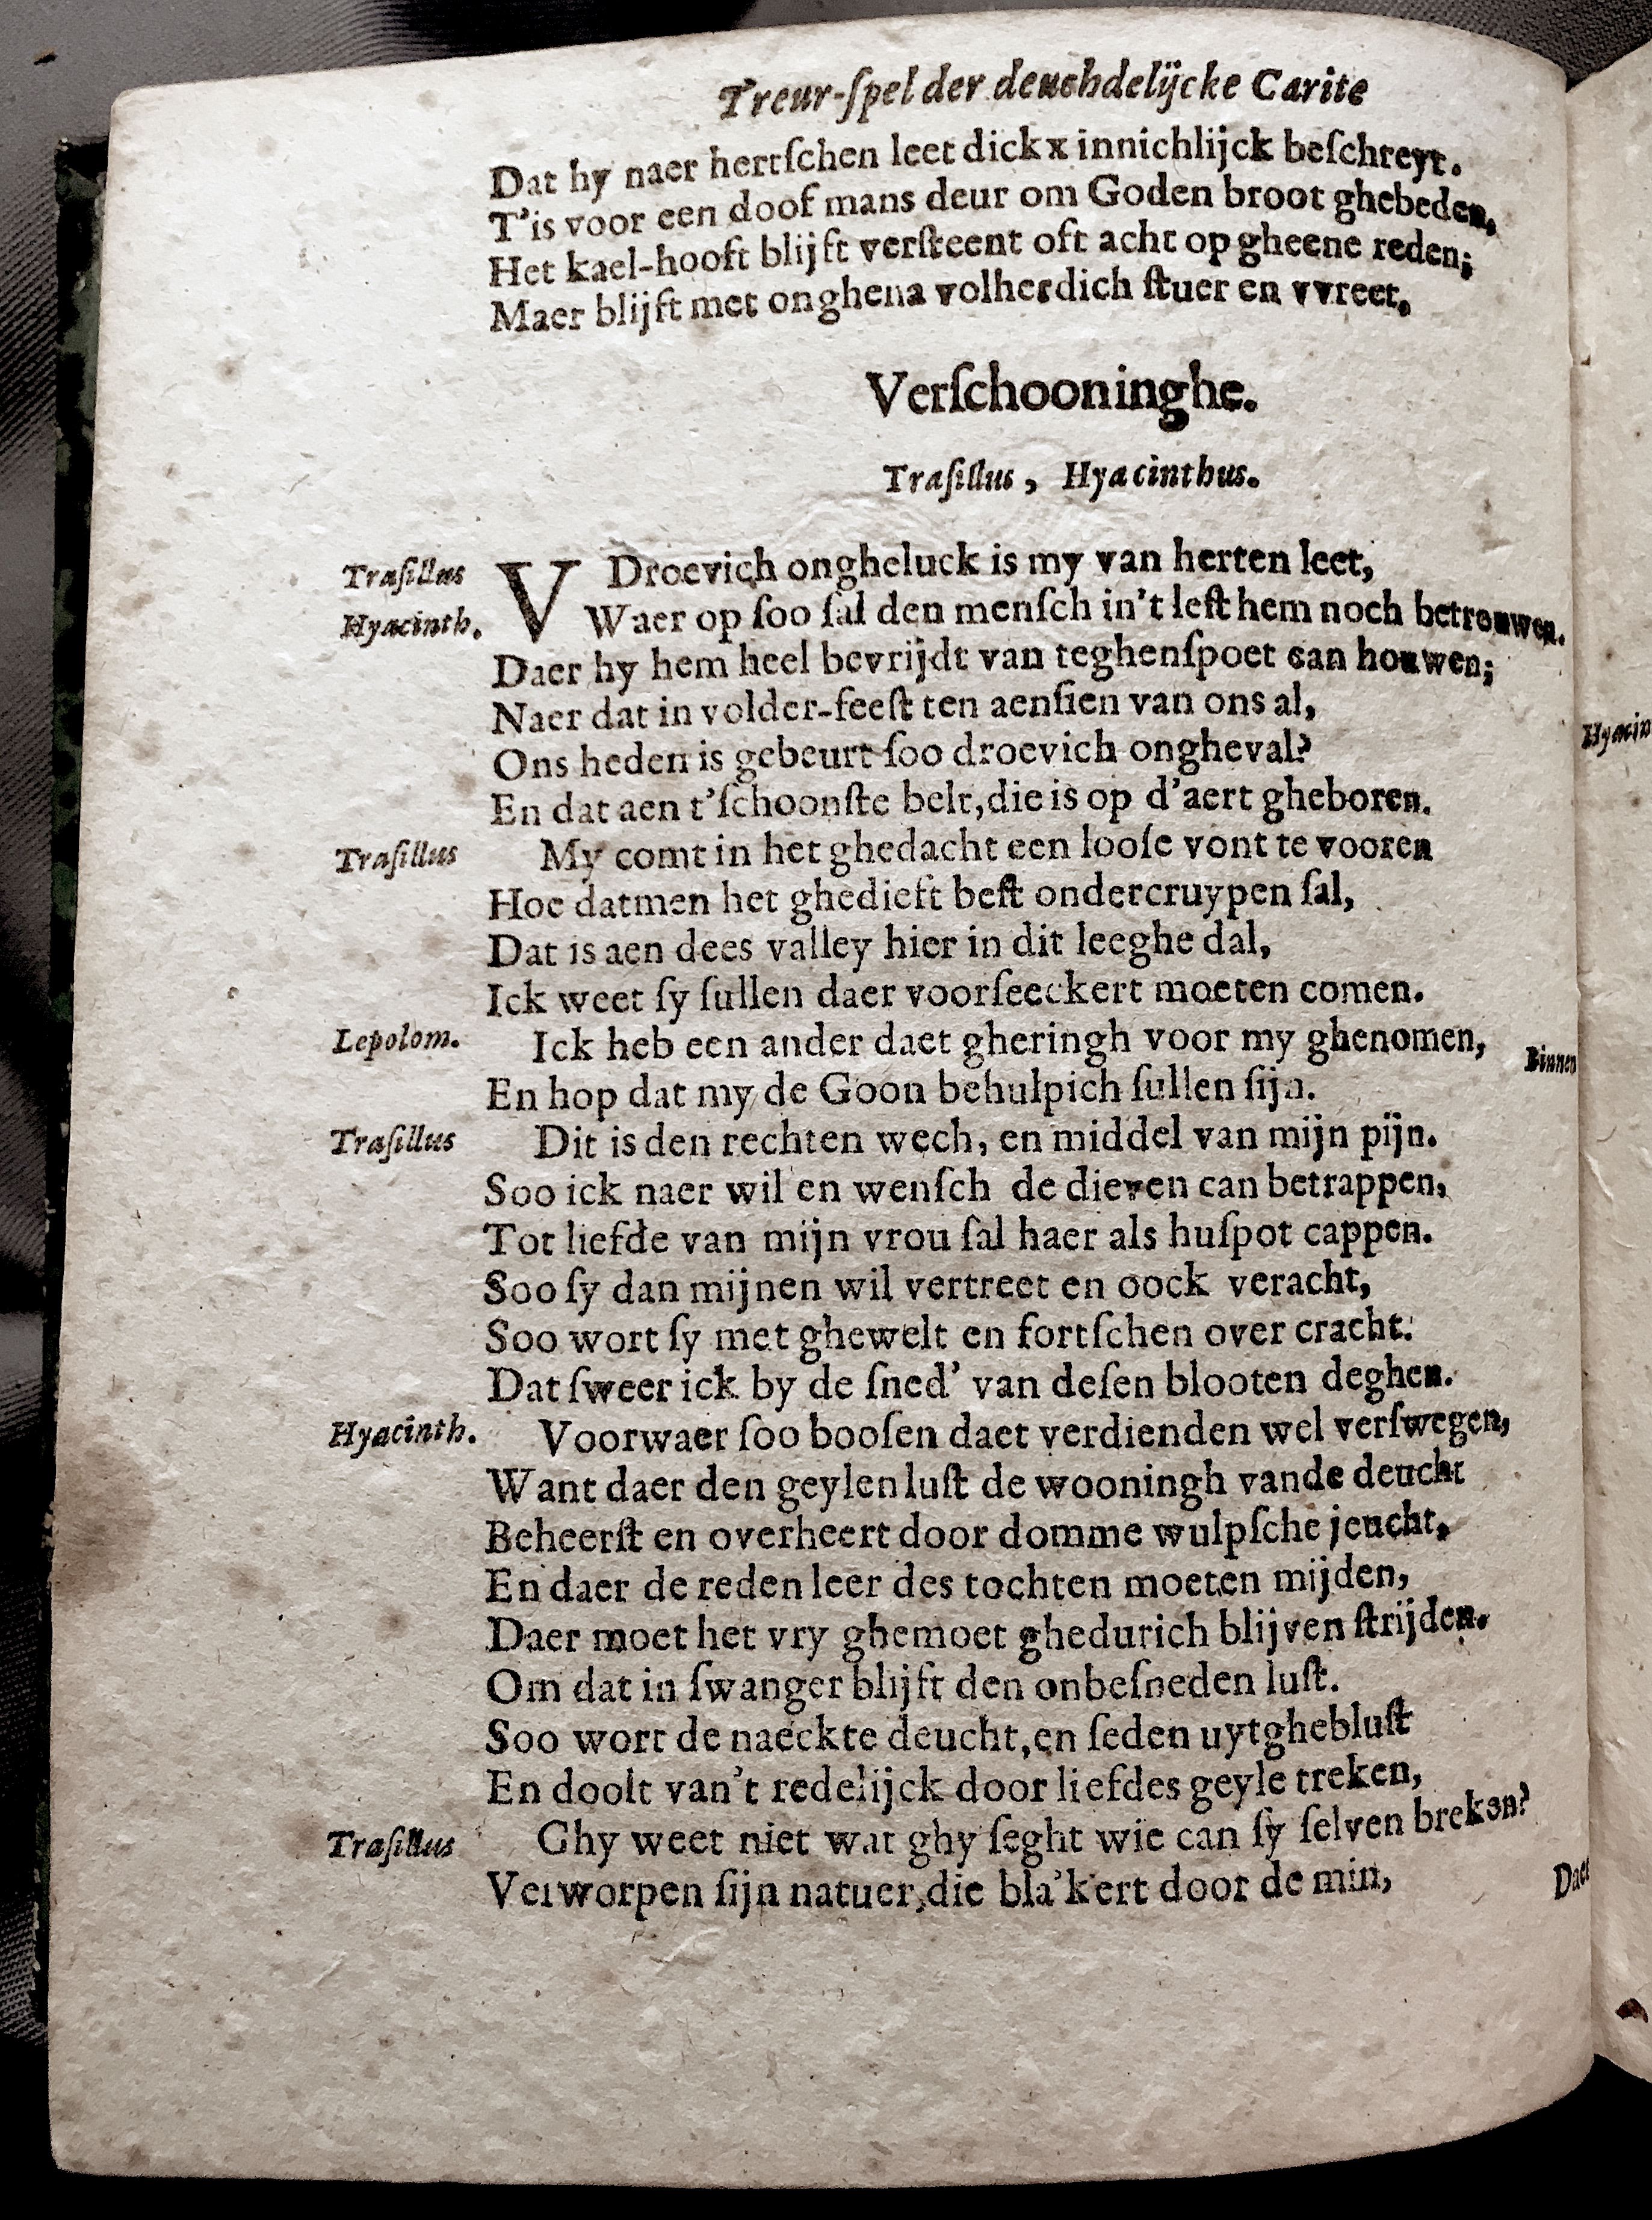 Treur-ſpel der deuchdelijcke Carite
Dat hy naer hertſchen leet dickx innichlijck beſchreyt.
T'is voor een doof mans deur om Goden broot ghebeden,
Het kael-hooft blijft verſteent oft acht op gheene reden;
Maer blijft met onghena volherdich ſtuer en vvreet.
Verſchooninghe.
Traſillus, Hyacinthus.
Traſillus V Droevich ongheluck is my van herten leet,
Hyacinth. Waer op ſoo ſal den menſch in't leſt hem noch betrouwen.
Daer hy hem heel bevrijdt van teghenſpoet can houwen;
Naer dat in volder-feeſt ten aenſien van ons al,
Ons heden is gebeurt ſoo droevich ongheval?
En dat aen t'ſchoonſte belt, die is op d'aert gheboren.
Traſillus My comt in het ghedacht een looſe vont te vooren
Hoe datmen het ghedieft beſt ondercruypen ſal,
Dat is aen dees valley hier in dit leeghe dal,
Ick weet ſy ſullen daer voorſeeckert moeten comen.
Lepolom. Ick heb een ander daet gheringh voor my ghenomen,
En hop dat my de Goon behulpich ſullen ſijn.
Traſillus Dit is den rechten wech, en middel van mijn pijn.
Soo ick naer wil en wenſch de dieven can betrappen,
Tot liefde van mijn vrou ſal haer als huſpot cappen.
Soo ſy dan mijnen wil vertreet en oock veracht,
Soo wort ſy met ghewelt en fortſchen over cracht.
Dat ſweer ick by de ſned' van deſen blooten deghen.
Hyacinth. Voorwaer ſoo booſen daet verdienden wel verſwegen,
Want daer den geylen luſt de wooningh vande deucht
Beheerſt en overheert door domme wulpſche jeucht,
En daer de reden leer des tochten moeten mijden,
Daer moet het vry ghemoet ghedurich blijven ſtrijden.
Om dat in ſwanger blijft den onbeſneden luſt.
Soo wort de naeckte deucht, en ſeden uytghebluſt
En doolt van't redelijck door liefdes geyle treken,
Traſillus Ghy weet niet wat ghy ſeght wie can ſy ſelven breken?
Verworpen ſijn natuer, die bla'kert door de min,
Hyacin
Binnen
Daer